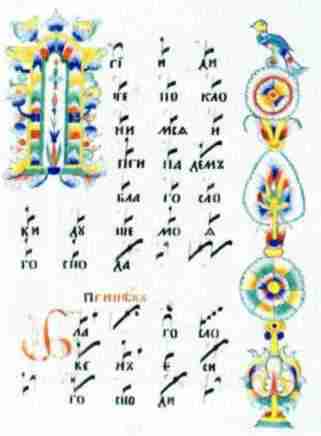 П рі и ди
те по кло
ни мсѧ и
при па демъ
бла го сло
ви дꙋ ше мо ѧ
го спо да
Припѣвъ
Б ла го сло
ве нъ е си
го спо ди